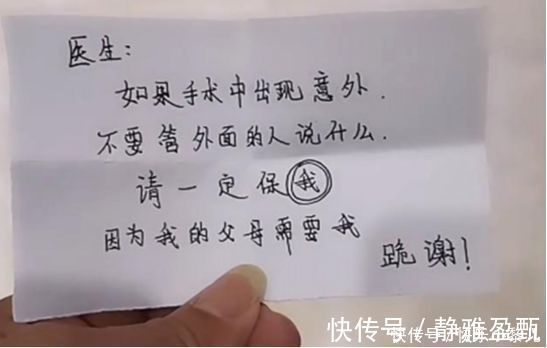 医生:
如果手术中出现意外.
不要管外面的人说什么.
请一定保我
因为我的父母需要我
跪谢!
快传号/静雅盈甄